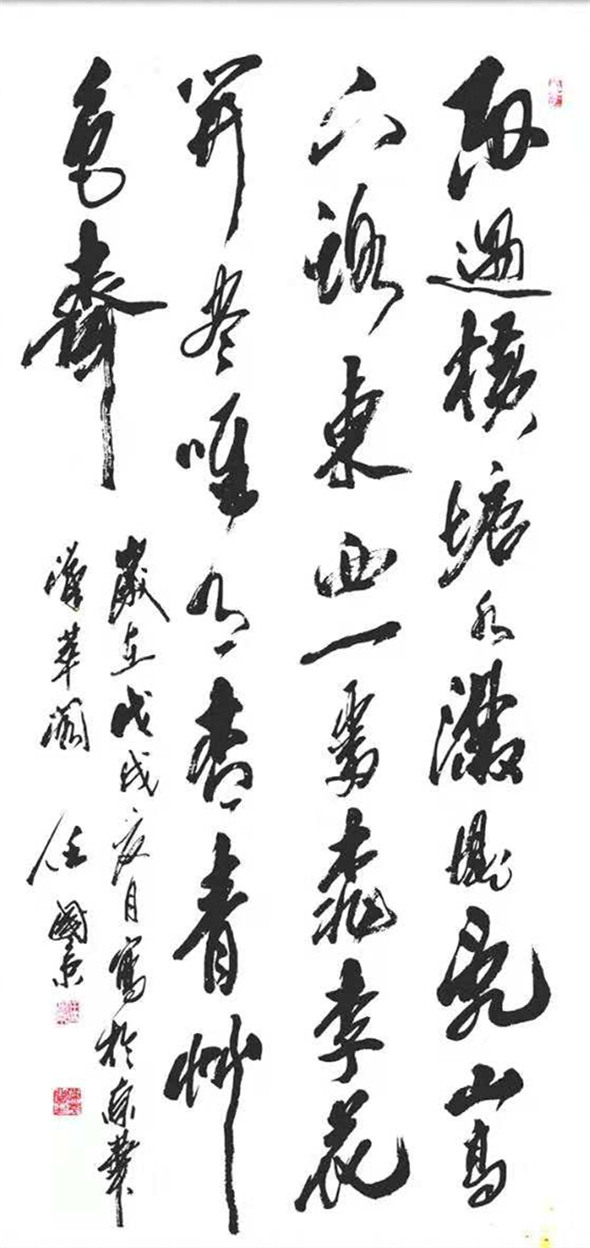 雨過橫塘水滿堤亂山高
下路東西一番桃李花
開尽唯有青青艸
色齊
歲在戊戌夏月寫於京華
萃閣 任國京